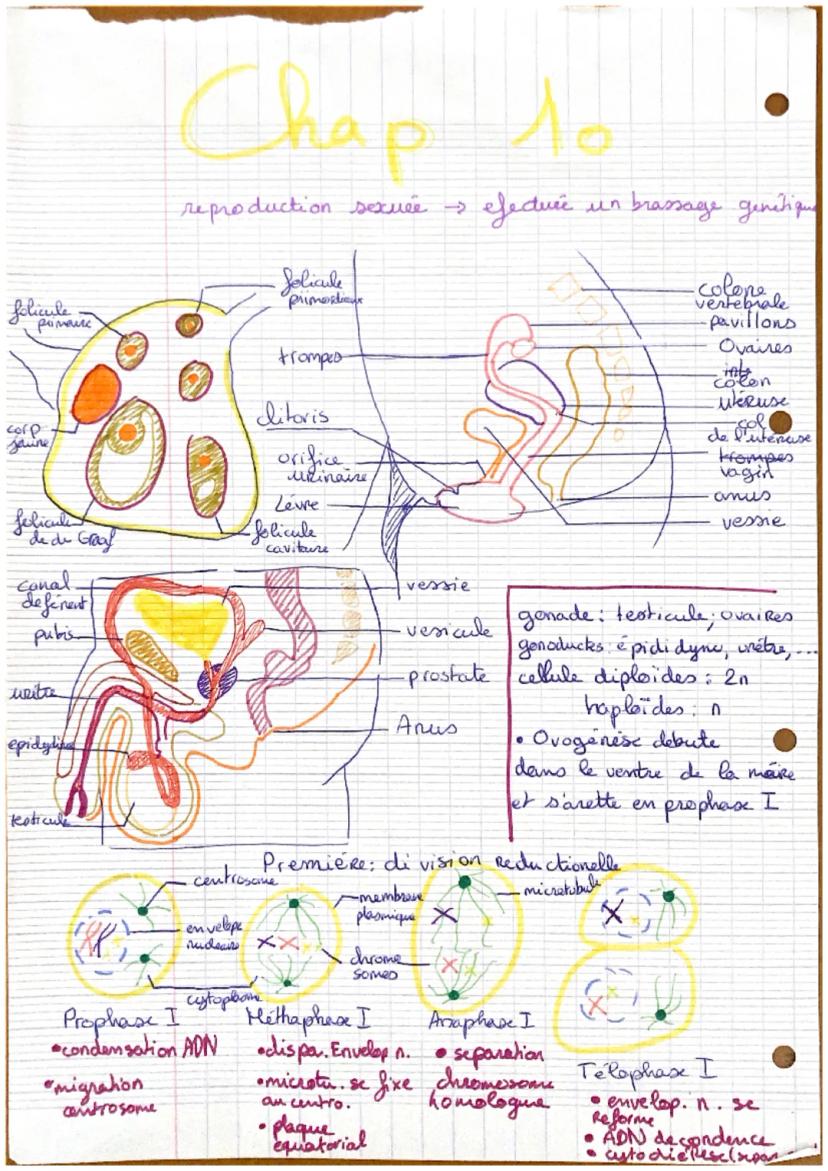 Chap 10
reproduction sexuée → efectuée un brassage genétique
folicule
primaire
folicule
primordiaux
corp
jaune
folicule
de de Graaf
folicule
cavitaire
trompes
clitoris
orifice
urinaire
Lévre
colone
vertebrale
pavillons
Ovaires
colon
utéruse
col
de l'utéruse
trompes
vagin
anus
vessie
canal
deférent
pubis
urètre
epididyme
testicule
vessie
vesicule
prostate
Anus
gonade : testicule, ovaires
gonoducks : épididyme, urétre, ...
cellule diploïdes : 2n
haploïdes : n
• Ovogénèse debute
dans le ventre de la mère
et s'arette en prophase I
Premiére : division reductionelle
centrosome
envelope
nucleaire
cytoplasme
membrane
plasmique
chromo
somes
microtubule
Prophase I
• condensation ADN
• migration
centrosome
Méthaphase I
• dispa. Envelop n.
• microtu. se fixe
au centro.
• plaque
équatorial
Anaphase I
• separation
chromosome
homologue
Télophase I
• envelop. n. se
reforme
• ADN decondence